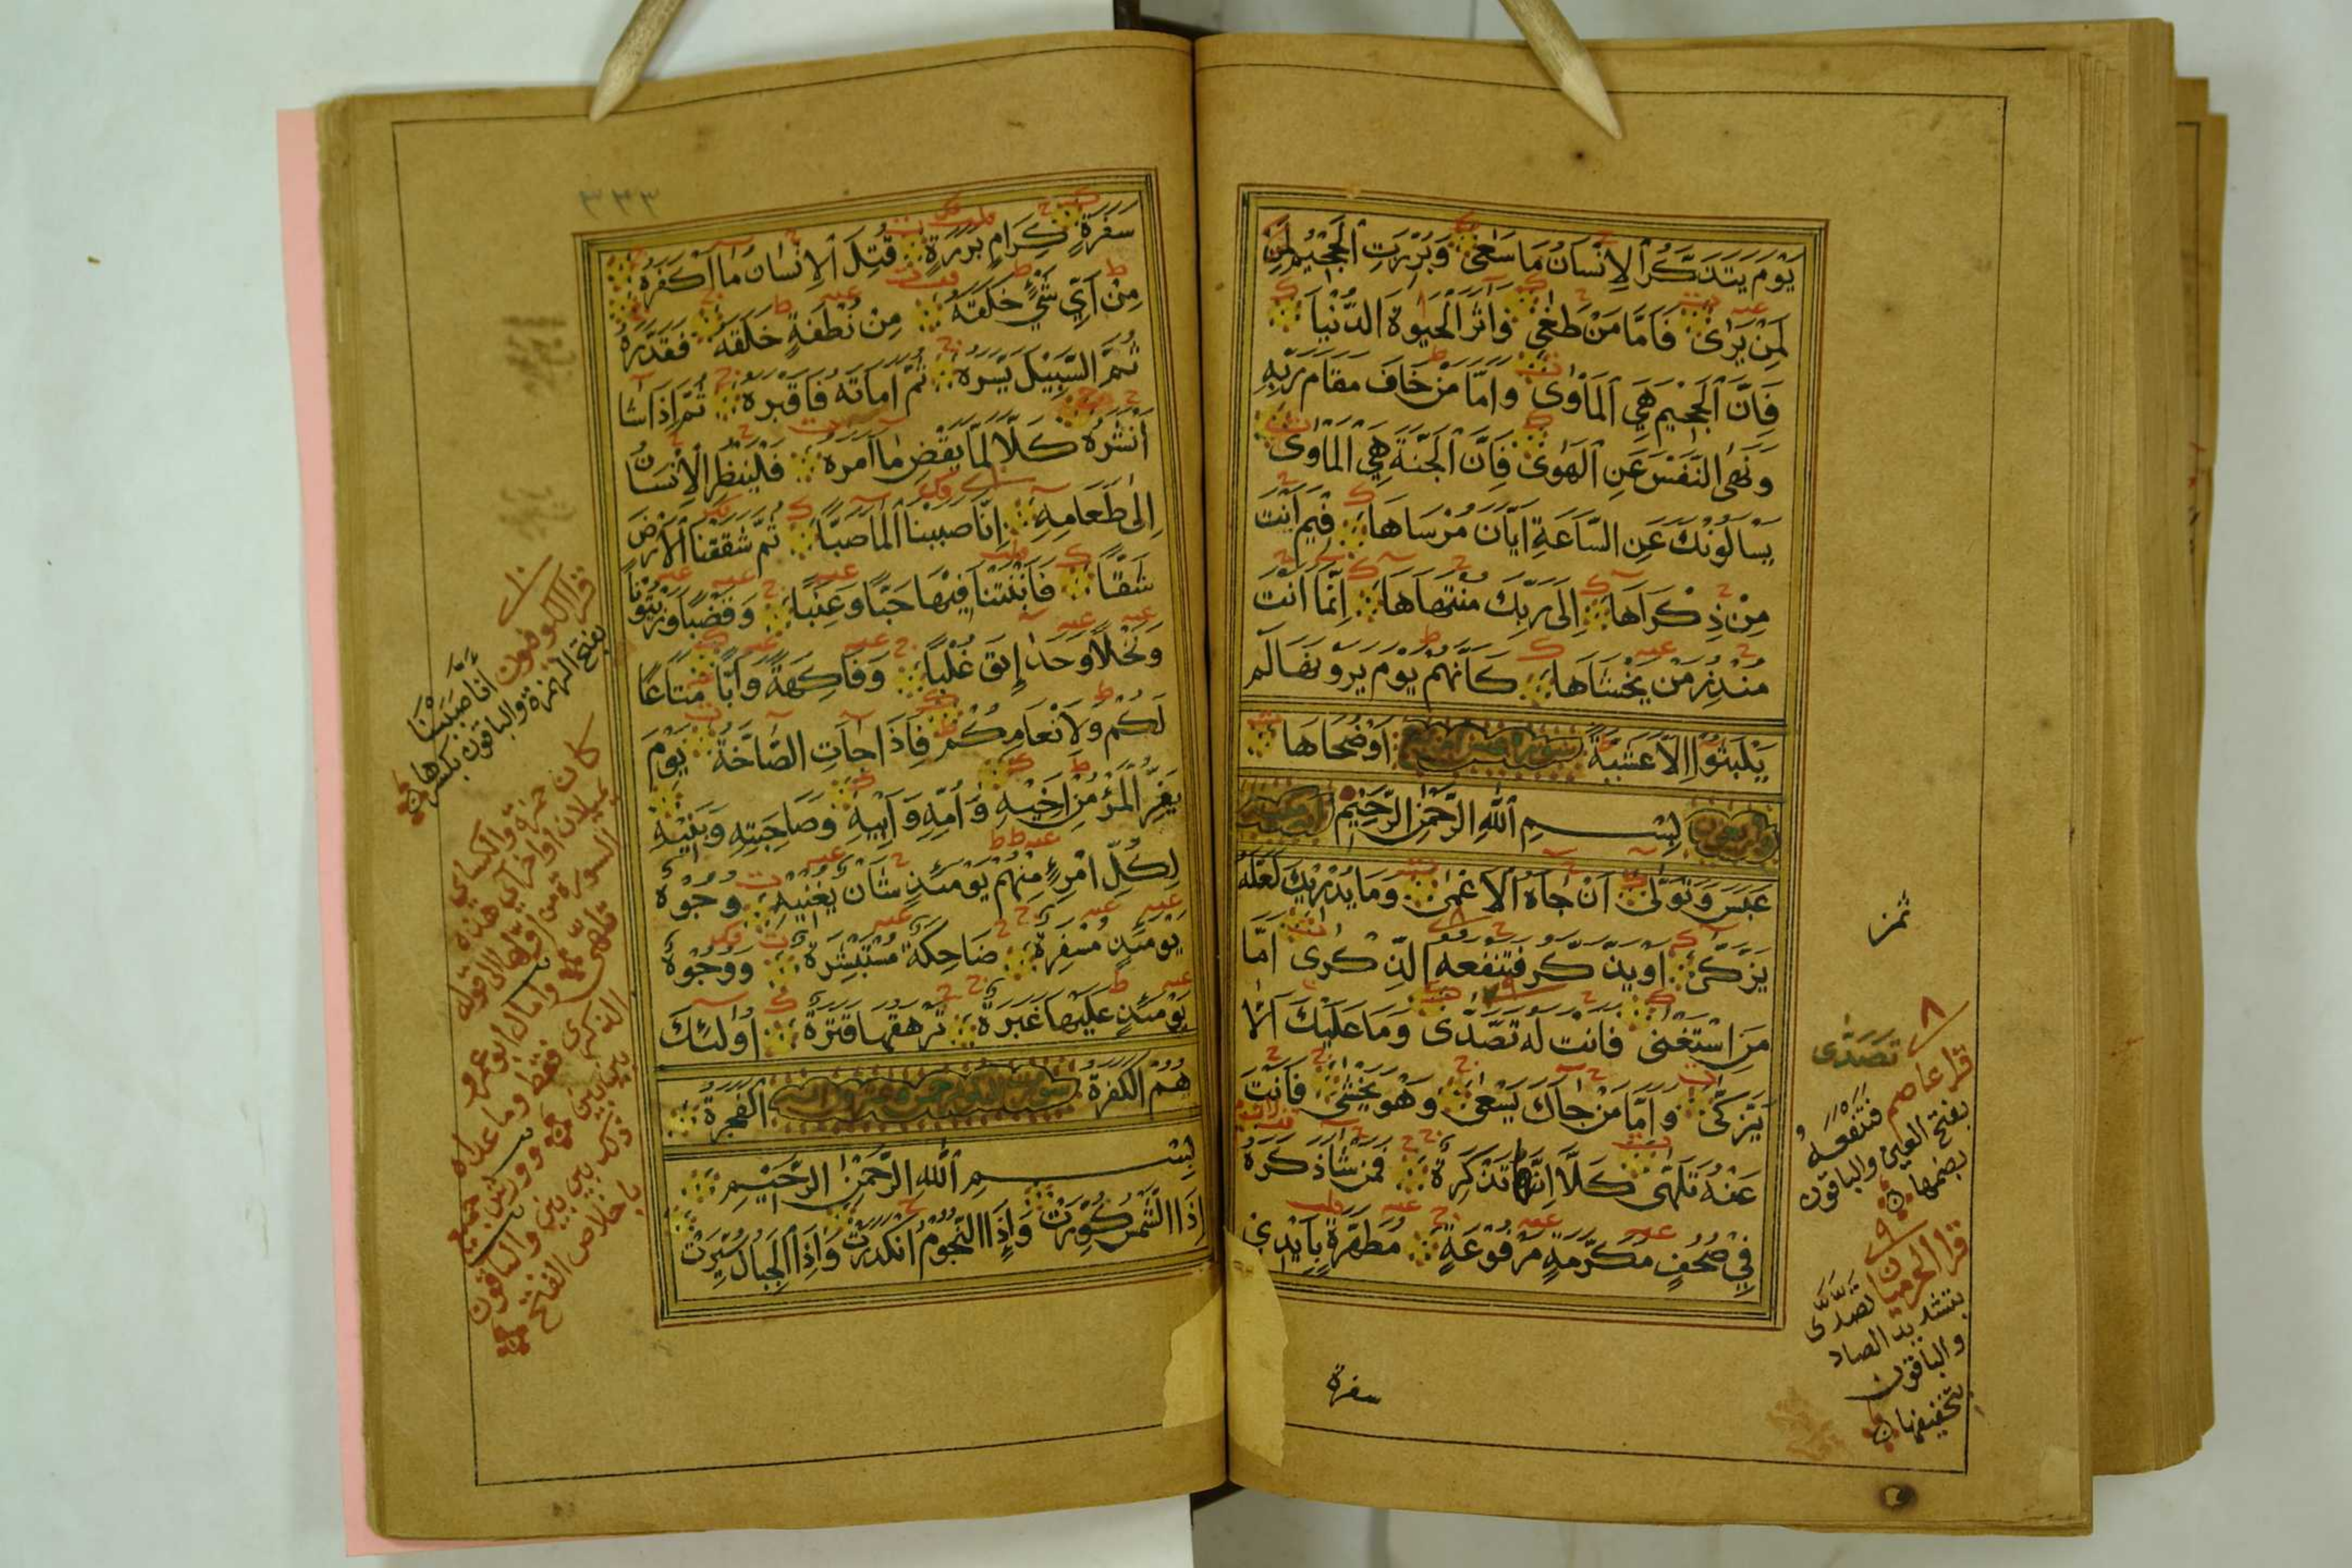 يَوْمَ يَتَذَكَّرُ الْاِنْسَانُ مَا سَعٰى وَبُرِّزَتِ الْجَحِيْمُ لِمَنْ
لِمَنْ يَرٰى فَاَمَّا مَنْ طَغٰى وَاٰثَرَ الْحَيٰوةَ الدُّنْيَا
فَاِنَّ الْجَحِيْمَ هِيَ الْمَاْوٰى وَاَمَّا مَنْ خَافَ مَقَامَ رَبِّهِ
وَنَهَى النَّفْسَ عَنِ الْهَوٰى فَاِنَّ الْجَنَّةَ هِيَ الْمَاْوٰى
يَسْاَلُوْنَكَ عَنِ السَّاعَةِ اَيَّانَ مُرْسَاهَا فِيْمَ اَنْتَ
مِنْ ذِكْرَاهَا اِلٰى رَبِّكَ مُنْتَهَاهَا اِنَّمَا اَنْتَ
مُنْذِرُ مَنْ يَخْشَاهَا كَاَنَّهُمْ يَوْمَ يَرَوْنَهَا لَمْ
يَلْبَثُوْا اِلَّا عَشِيَّةً اَوْ ضُحَاهَا
بِسْمِ اللّٰهِ الرَّحْمٰنِ الرَّحِيْمِ
عَبَسَ وَتَوَلّٰى اَنْ جَاءَهُ الْاَعْمٰى وَمَا يُدْرِيْكَ لَعَلَّهُ
يَزَّكّٰى اَوْ يَذَّكَّرُ فَتَنْفَعَهُ الذِّكْرٰى اَمَّا
مَنِ اسْتَغْنٰى فَاَنْتَ لَهُ تَصَدّٰى وَمَا عَلَيْكَ اَلَّا
يَزَّكّٰى وَاَمَّا مَنْ جَاءَكَ يَسْعٰى وَهُوَ يَخْشٰى فَاَنْتَ
عَنْهُ تَلَهّٰى كَلَّا اِنَّهَا تَذْكِرَةٌ فَمَنْ شَاءَ ذَكَرَهُ
فِيْ صُحُفٍ مُكَرَّمَةٍ مَرْفُوْعَةٍ مُطَهَّرَةٍ بِاَيْدِيْ
سفرة
ثمن
٨
تَصَدّٰى
قرا عاصم فَتَنْفَعَهُ
بفتح العين والباقون
بضمها
٩
قرا الحرميان تَصَّدّٰى
بتشديد الصاد
والباقون
بتخفيفها
٣٣٣
سَفَرَةٍ كِرَامٍ بَرَرَةٍ قُتِلَ الْاِنْسَانُ مَا اَكْفَرَهُ
مِنْ اَيِّ شَيْءٍ خَلَقَهُ مِنْ نُطْفَةٍ خَلَقَهُ فَقَدَّرَهُ
ثُمَّ السَّبِيْلَ يَسَّرَهُ ثُمَّ اَمَاتَهُ فَاَقْبَرَهُ ثُمَّ اِذَا شَا
اَنْشَرَهُ كَلَّا لَمَّا يَقْضِ مَا اَمَرَهُ فَلْيَنْظُرِ الْاِنْسَانُ
اِلٰى طَعَامِهِ اِنَّا صَبَبْنَا الْمَا صَبًّا ثُمَّ شَقَقْنَا الْاَرْضَ
شَقًّا فَاَنْبَتْنَا فِيْهَا حَبًّا وَعِنَبًا وَقَضْبًا وَزَيْتُوْنًا
وَنَخْلًا وَحَدَائِقَ غُلْبًا وَفَاكِهَةً وَاَبًّا مَتَاعًا
لَكُمْ وَلِاَنْعَامِكُمْ فَاِذَا جَاءَتِ الصَّاخَّةُ يَوْمَ
يَفِرُّ الْمَرْءُ مِنْ اَخِيْهِ وَاُمِّهِ وَاَبِيْهِ وَصَاحِبَتِهِ وَبَنِيْهِ
لِكُلِّ امْرِئٍ مِنْهُمْ يَوْمَئِذٍ شَاْنٌ يُغْنِيْهِ وُجُوْهٌ
يَوْمَئِذٍ مُسْفِرَةٌ ضَاحِكَةٌ مُسْتَبْشِرَةٌ وَوُجُوْهٌ
يَوْمَئِذٍ عَلَيْهَا غَبَرَةٌ تَرْهَقُهَا قَتَرَةٌ اُولٰئِكَ
هُمُ الْكَفَرَةُ الْفَجَرَةُ
بِسْمِ اللّٰهِ الرَّحْمٰنِ الرَّحِيْمِ
اِذَا الشَّمْسُ كُوِّرَتْ وَاِذَا النُّجُوْمُ انْكَدَرَتْ وَاِذَا الْجِبَالُ سُيِّرَتْ
١٠
قرا الكوفيون اَنَّا صَبَبْنَا
بفتح الهمزة والباقون بكسرها
كان حمزة والكسائي
يميلان اواخر اي هذه
السورة من اولها الى قوله
تلهى وامال ابو عمرو
الذكرى فقط وما عداه
بين بين وورش جميع
ذلك بين بين والباقون
باخلاص الفتح